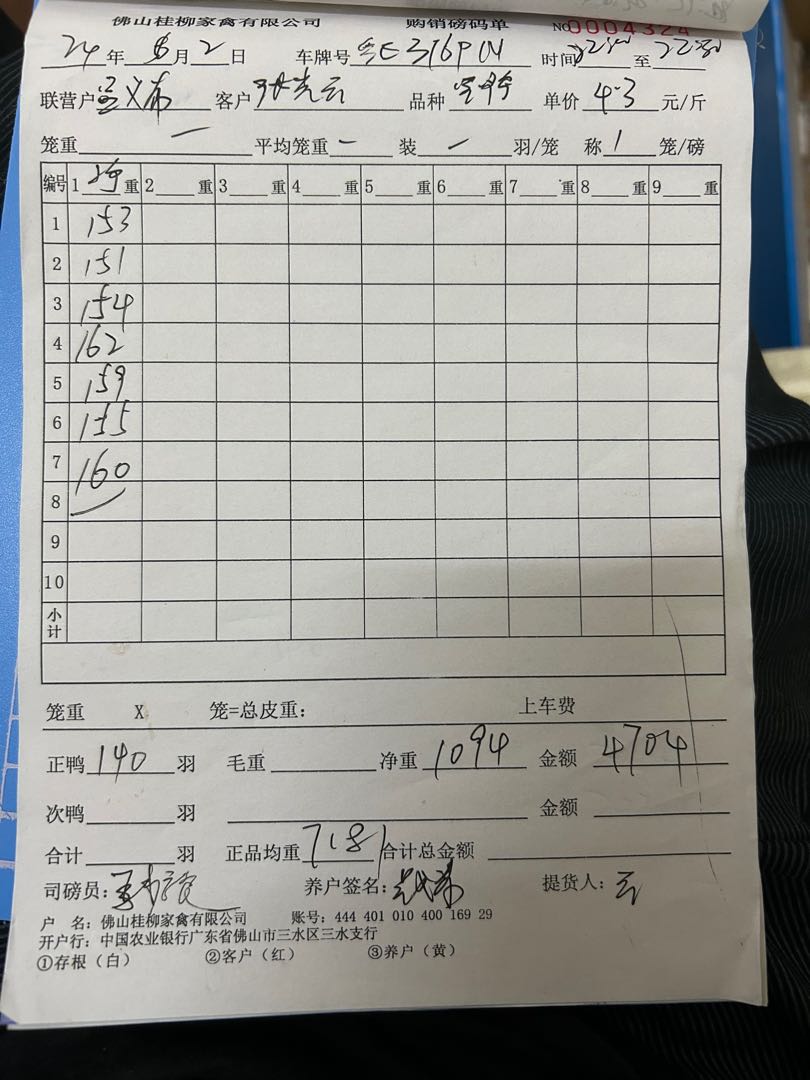 佛山桂柳家禽有限公司 购销磅码单 NO 0004324
24年 月2日 车牌号 E316P 时间 至
联营户 客户 品种 单价 4.3 元/斤
笼重 一 平均笼重 一 装 一 羽/笼 称 1 笼/磅
编号 1 净 重 2 重 3 重 4 重 5 重 6 重 7 重 8 重 9 重
1 153
2 151
3 154
4 162
5 159
6 155
7 160
8
9
10
小计
笼重 X 笼=总皮重: 上车费
正鸭 140 羽 毛重 净重 1094 金额 4704
次鸭 羽 金额
合计 羽 正品均重 7.81 合计总金额
司磅员: 养户签名: 提货人: 云
户 名: 佛山桂柳家禽有限公司 账号: 444 401 010 400 169 29
开户行: 中国农业银行广东省佛山市三水区三水支行
①存根（白） ②客户（红） ③养户（黄）